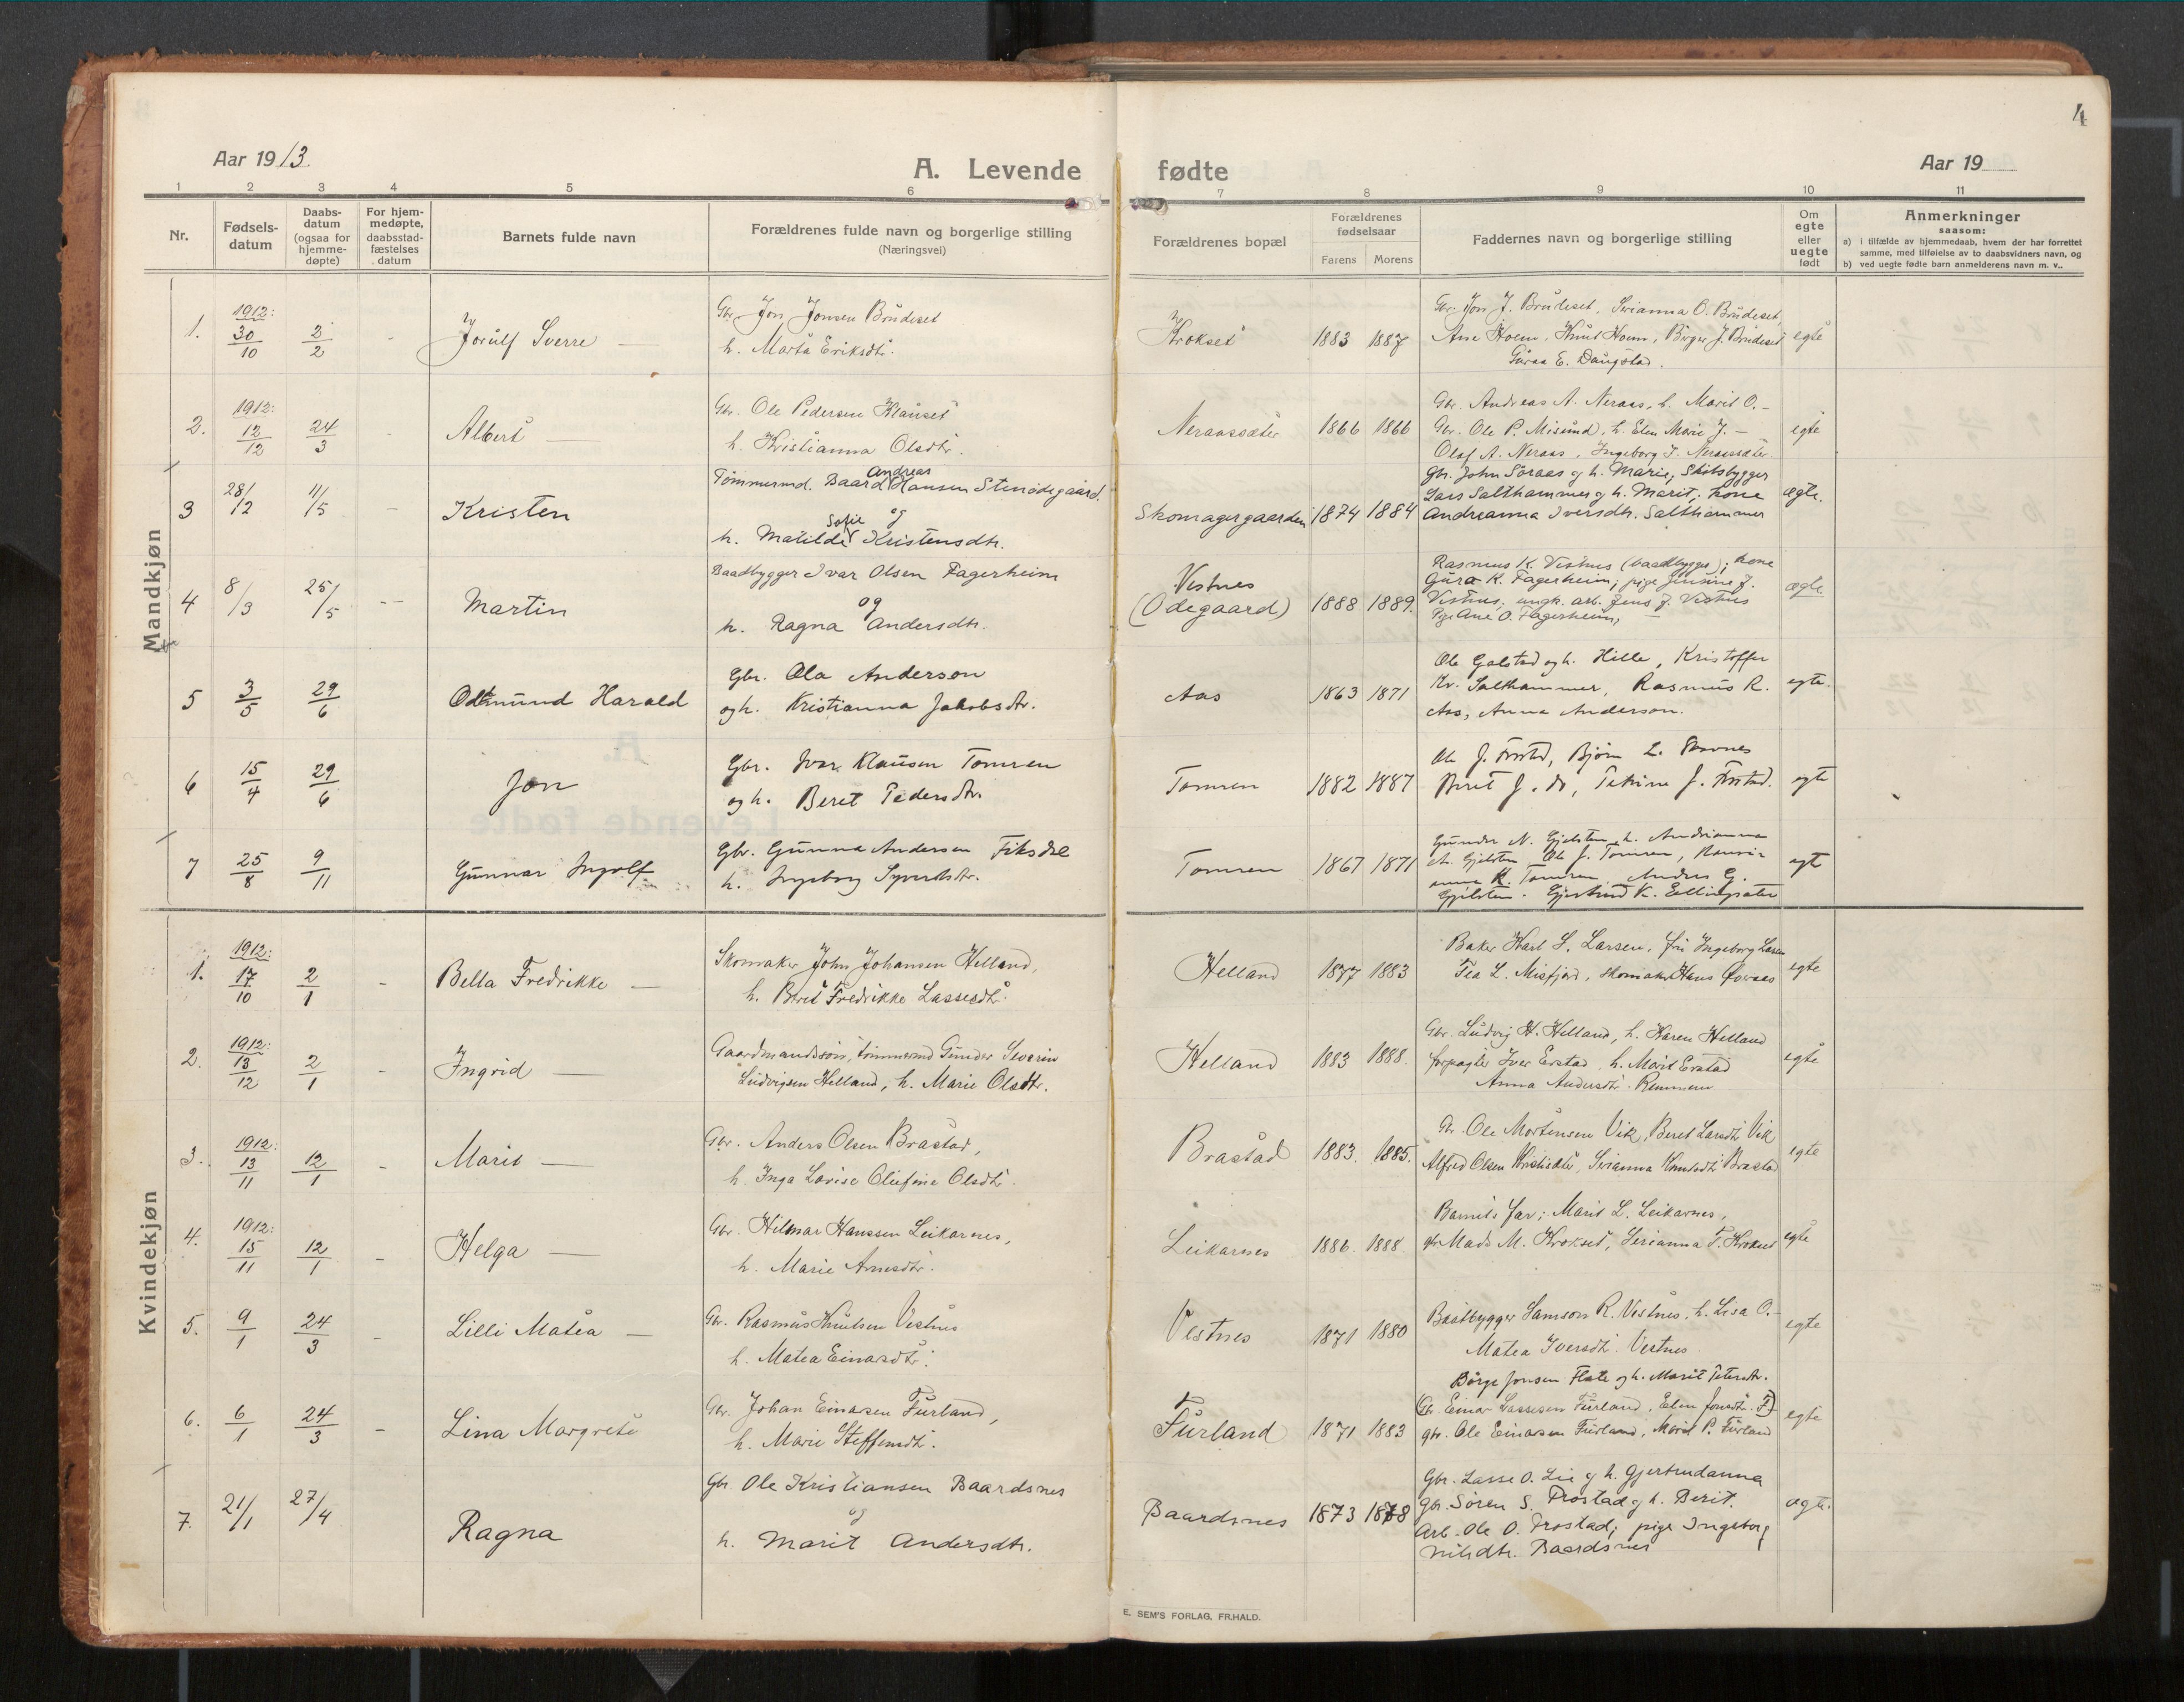 4
Aar 1913.
A. Levende fødte
Aar 19
1 2 3 4 5 6 7 8 9 10 11
Nr.
Fødsels-
datum
Daabs-
datum
(ogsaa for
hjemme-
døpte)
For hjem-
medøpte,
daabsstad-
fæstelses
datum
Barnets fulde navn
Forældrenes fulde navn og borgerlige stilling
(Næringsvei)
Forældrenes bopæl
Forældrenes
fødselsaar
Farens Morens
Faddernes navn og borgerlige stilling
Om
egte
eller
uegte
født
Anmerkninger
saasom:
a) i tilfælde av hjemmedaab, hvem der har forrettet
samme, med tilføielse av to daabsvidners navn, og
b) ved uegte fødte barn anmelderens navn m. v..
Mandkjøn
1. 1912: 30/10 2/2 - Jorulf Sverre —
Gbr. Jon Jonsen Brudeset
h. Marta Eriksdtr.
Krokset 1883 1887
Gbr. Jon J. Brudeset, Serianna O. Brudeset,
Ane Hoem, Knut Hoem, Birger J. Brudeset
Guraa E. Daugstad.
egte
2. 1912: 12/12 24/3 - Albert —
Gbr. Ole Pedersen Klauset
h. Kristianna Olsdtr.
Neraassæter 1866 1866
Gbr. Andreas A. Neraas, h. Marit O. -
Gbr. Ole P. Misund, h. Elen Marie J. -
Olaf A. Neraas, Ingeborg J. Neraassæter.
egte
3 28/12 11/5 - Kristen
Tømmermd. Baard Andreas Hansen Stenødegaard.
og
h. Matilde Sofie Kristensdtr.
Skomagergaarden 1874 1884
Gbr. John Soraas og h. Marie; Skibsbygger
Lars Salthammer og h. Marit; kone
Andreanna Iversdtr. Salthammer
ægte.
4 8/3 25/5 -- Martin
Baadbygger Ivar Olsen Fagerheim
og
h. Ragna Andersdtr.
Vestnes
(Ødegaard) 1888 1889.
Rasmus K. Vestnes (baadbygger); kone
Gura K. Fagerheim; pige J.
Vestnes; ungk. arb. Jens J. Vestnes
Pige Ane O. Fagerheim,
ægte.
5 3/5 29/6 Oddmund Harald
Gbr. Ola Anderson
og h. Kristianna Jakobsdtr.
Aas 1863 1871
Ole Galstad og h. Hille, Kristoffer
Kr. Salthammer, Rasmus R.
Aas, Anna Anderson.
egte.
6 15/4 29/6 Jon
Gbr. Ivar Klausen Tomren
og h. Beret Pedersdtr.
Tomren 1882 1887
Ole J. , Bjørn L.
Beret J. do, J.
egte
7 25/8 9/11 Gunnar Ingolf
Gbr. Gunnar Andersen Fiksdal
h. Ingeborg Syvertsdtr.
Tomren 1867 1871
Gunder N. Gjelsten, h. Andrianna
A. Gjelsten, Ole J. Tomren,
K. Tomren. Anders G.
Gjelsten. Gjertrud K. Ellingsæter
egte
Kvindekjøn
1. 1912: 17/10 2/1 - Bella Fredrikke —
Skomaker John Johansen Helland,
h. Beret Fredrikke Lassesdtr.
Helland 1877 1883
Baker Karl S. Larsen, fru Ingeborg Larsen
Tea L. Misfjord, skomaker Hans
egte
2. 1912: 13/12 2/1 - Ingrid —
Gaardmandssøn, tømmermd Gunder Severin
Ludvigsen Helland, h. Marie Olsdtr.
Helland 1883 1888.
Gbr. Ludvig H. Helland, h. Karen Helland
forpagter Iver Erstad, h. Marit Erstad
Anna Andersdtr. Remmem
egte
3. 1912: 13/11 12/1 - Marit —
Gbr. Anders Olsen Brastad,
h. Inga Lovise Olufine Olsdtr.
Brastad 1883. 1885.
Gbr. Ole Mortensen Vik, Beret Larsdtr Vik
Alfred Olsen , Serianna Knutsdtr Brastad
egte
4. 1912: 15/11 12/1 - Helga —
Gbr. Hilmar Hanssen Leikarnes,
h. Marie Arnesdtr.
Leikarnes 1886. 1888.
Barnets far; Marit L. Leikarnes,
gbr Mads M. Krokset, Serianna T. Krokset
egte
5. 9/1 24/3 - Lilli Matea —
Gbr. Rasmus Knutsen Vestnes
h. Matea Einarsdtr.
Vestnes 1871 1880
Baatbygger Samson R. Vestnes, h. Lisa O. -
Matea Iversdtr. Vestnes.
egte
6. 6/1 24/3 - Lina Margrete
Gbr. Johan Einarsen Furland,
h. Marie Steffensdtr.
Furland 1871 1883
Børge Jonsen Flate og h. Marit Petersdtr.
(Gbr. Einar Lassesen Furland, Elen Jonsdtr. F)
gbr. Ole Einarsen Furland, Marit P. Furland
egte
7. 21/1 27/4 Ragna
Gbr. Ole Kristiansen Baardsnes
og
h. Marit Andersdtr.
Baardsnes 1873 1878
Gbr. Lasse O. Lie og h. Gjertrudanna
gbr. Søren S. Frostad og h. Berit.
Arb. Ole O. Frostad; pige Ingeborg
Nilsdtr. Baardsnes
ægte.
E. SEM'S FORLAG, FR.HALD.